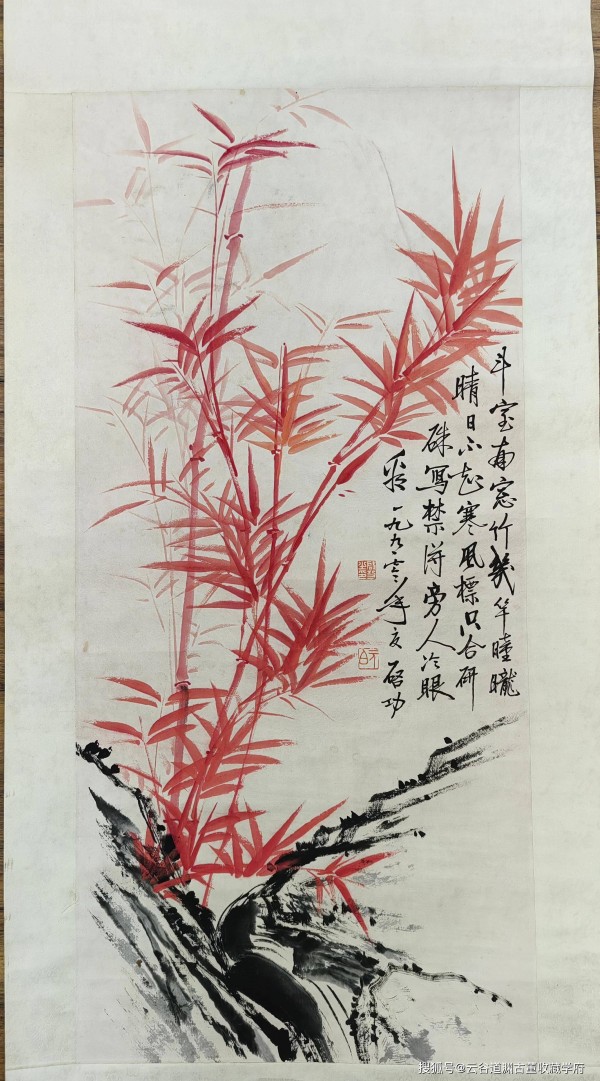 斗室南窓竹幾竿曈曨
晴日不知寒風標只合研
硃寫禁得旁人冷眼
看 一九九三年夏 啓功
搜狐号@云谷道渊古董收藏学府